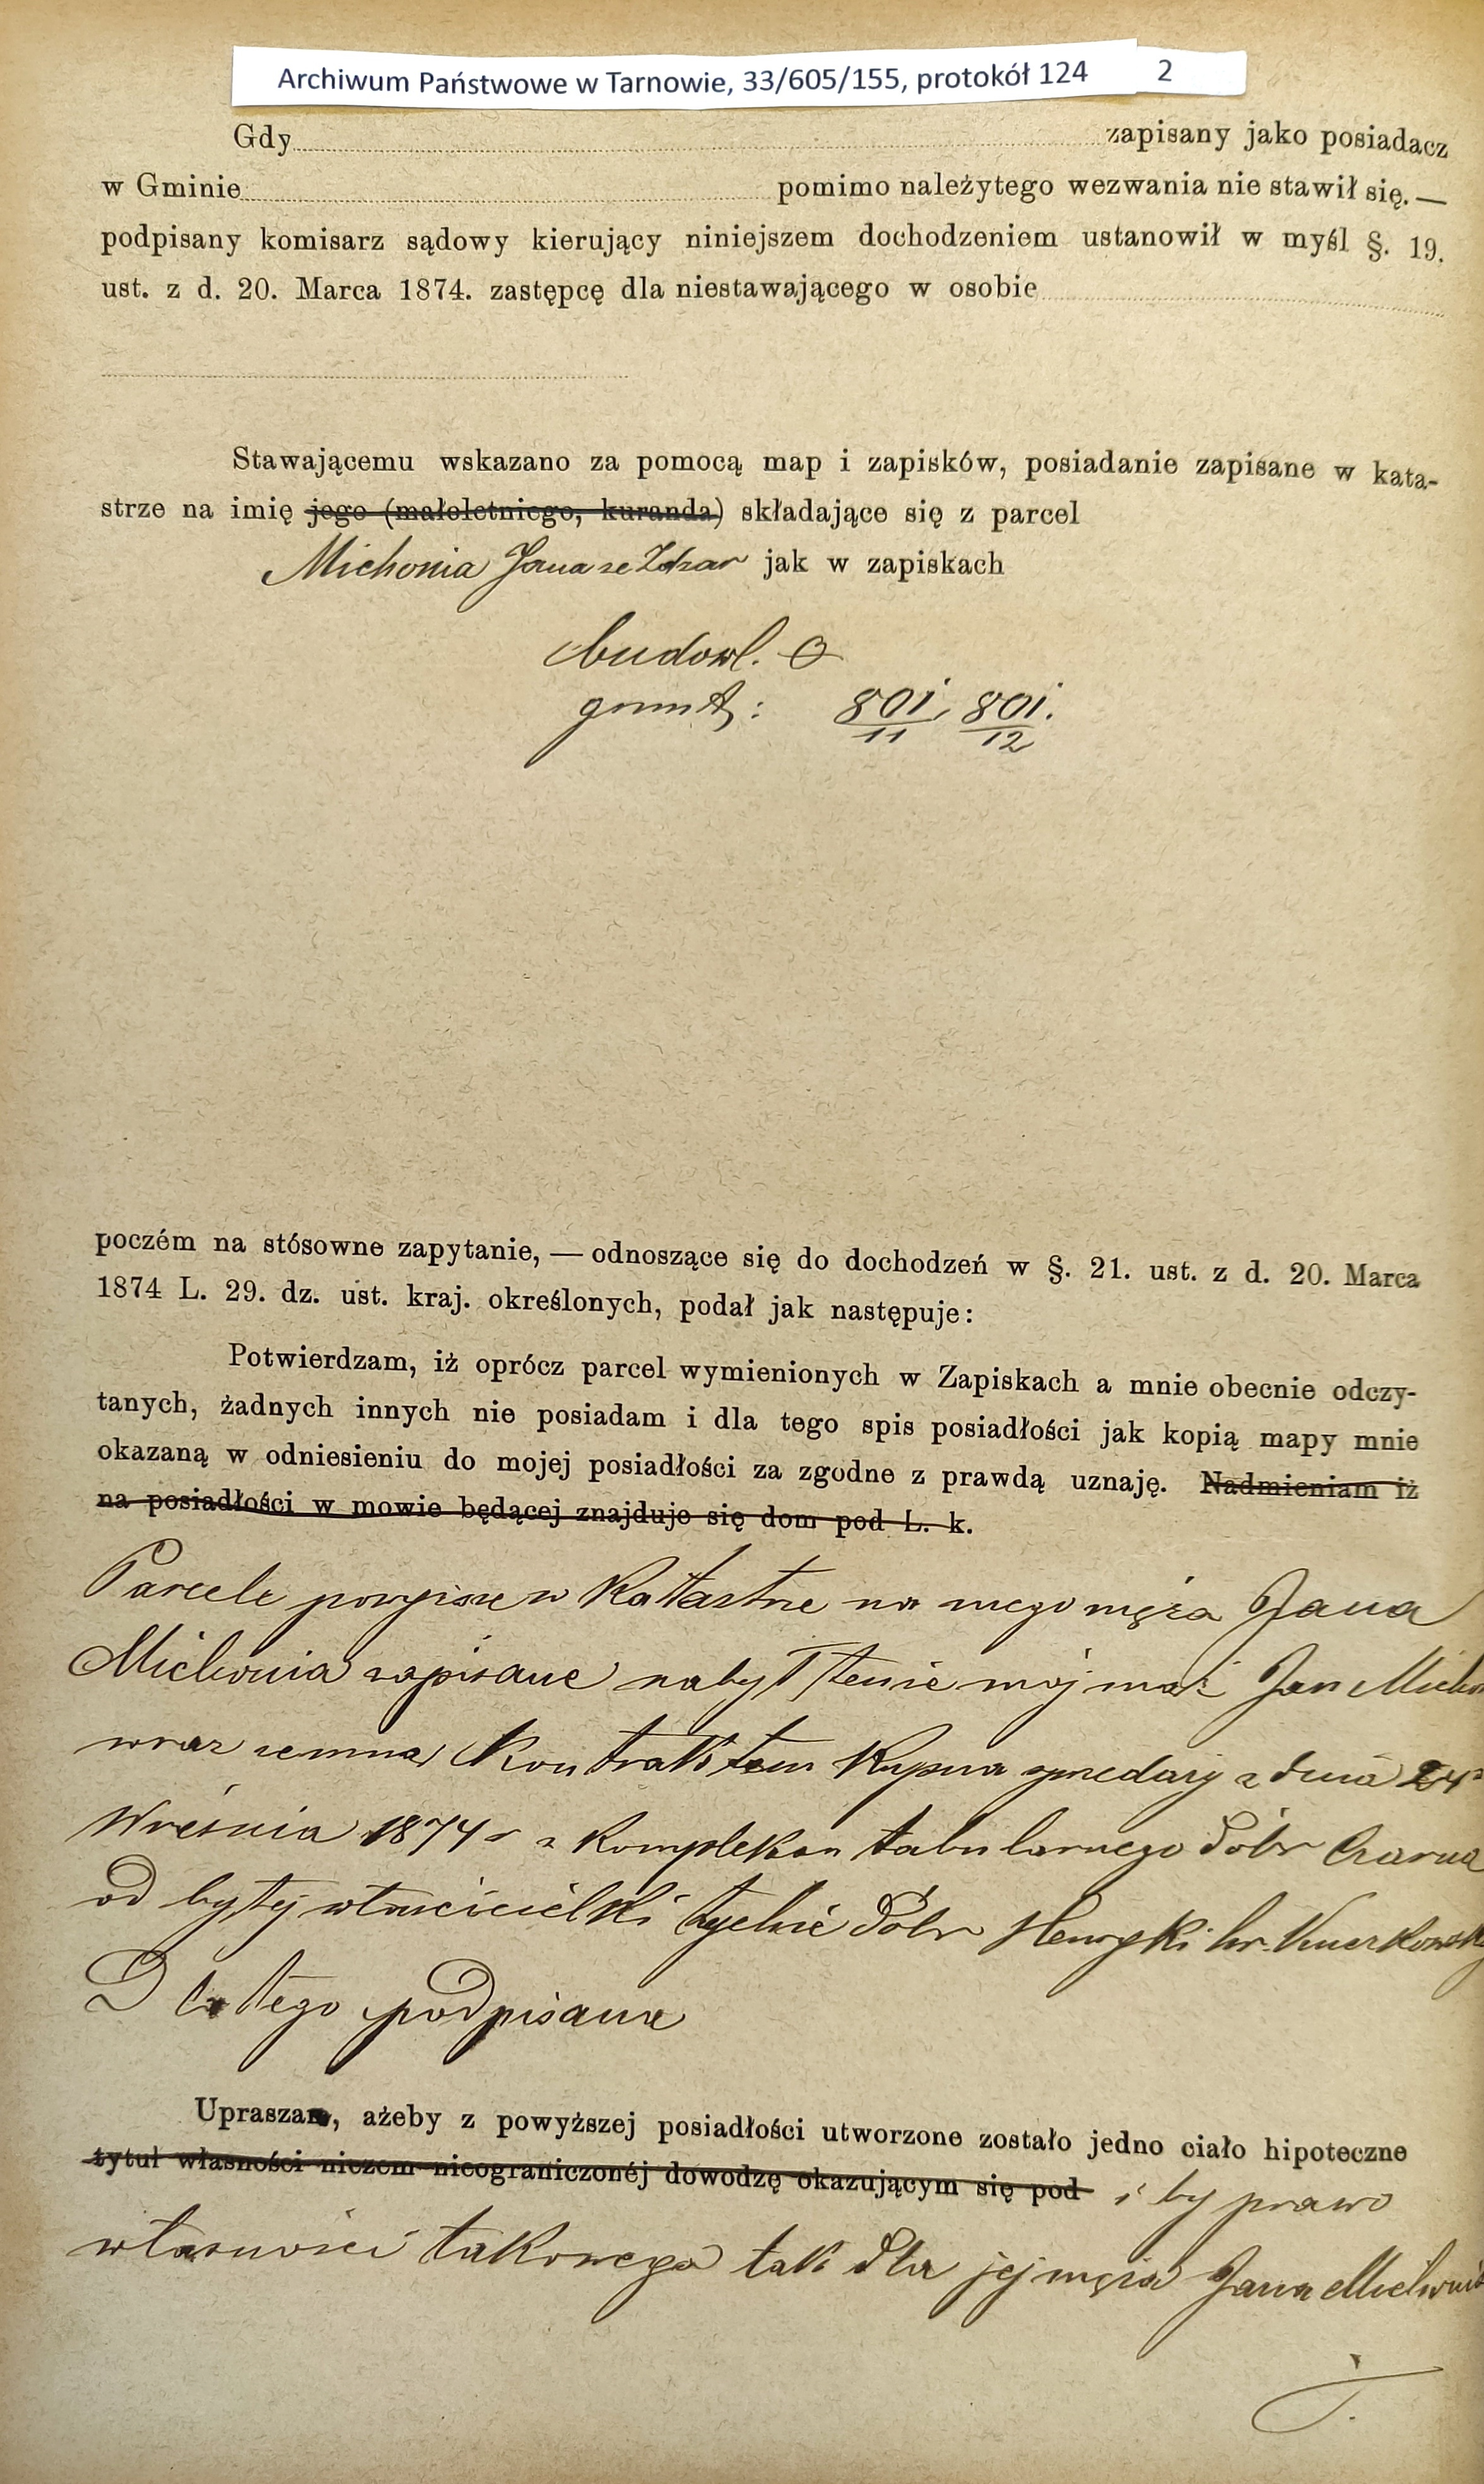 Archiwum Państwowe w Tarnowie, 33/605/155, protokół 124 2
Gdy zapisany jako posiadacz
w Gminie pomimo należytego wezwania nie stawił się. —
podpisany komisarz sądowy kierujący niniejszem dochodzeniem ustanowił w myśl §. 19.
ust. z d. 20. Marca 1874. zastępcę dla niestawającego w osobie
Stawającemu wskazano za pomocą map i zapisków, posiadanie zapisane w kata-
strze na imię jego (małoletniego, kuranda) składające się z parcel
Michonia Jana ze Żdżar jak w zapiskach
budowl. 0
grunt: 801/11, 801/12.
poczém na stósowne zapytanie, — odnoszące się do dochodzeń w §. 21. ust. z d. 20. Marca
1874 L. 29. dz. ust. kraj. określonych, podał jak następuje:
Potwierdzam, iż oprócz parcel wymienionych w Zapiskach a mnie obecnie odczy-
tanych, żadnych innych nie posiadam i dla tego spis posiadłości jak kopią mapy mnie
okazaną w odniesieniu do mojej posiadłości za zgodne z prawdą uznaję. Nadmieniam iż
na posiadłości w mowie będącej znajduje się dom pod L. k.
Parcele powyższe w Katastrze na mego męża Jana
Michonia zapisane nabył tenże mój mąż Jan
wraz zemną Kontraktem Kupna sprzedaży z dnia 24
Września 1874 r z kompleksu tabularnego dóbr Czarna
od byłej właścicielki tychże dóbr Henryki hr.
Dla tego podpisana
Uprasza, ażeby z powyższej posiadłości utworzone zostało jedno ciało hipoteczne
tytuł własności niczem nieograniczonéj dowodzę okazującym się pod i by prawo
własności takowego tak dla jej męża Jana Michonia